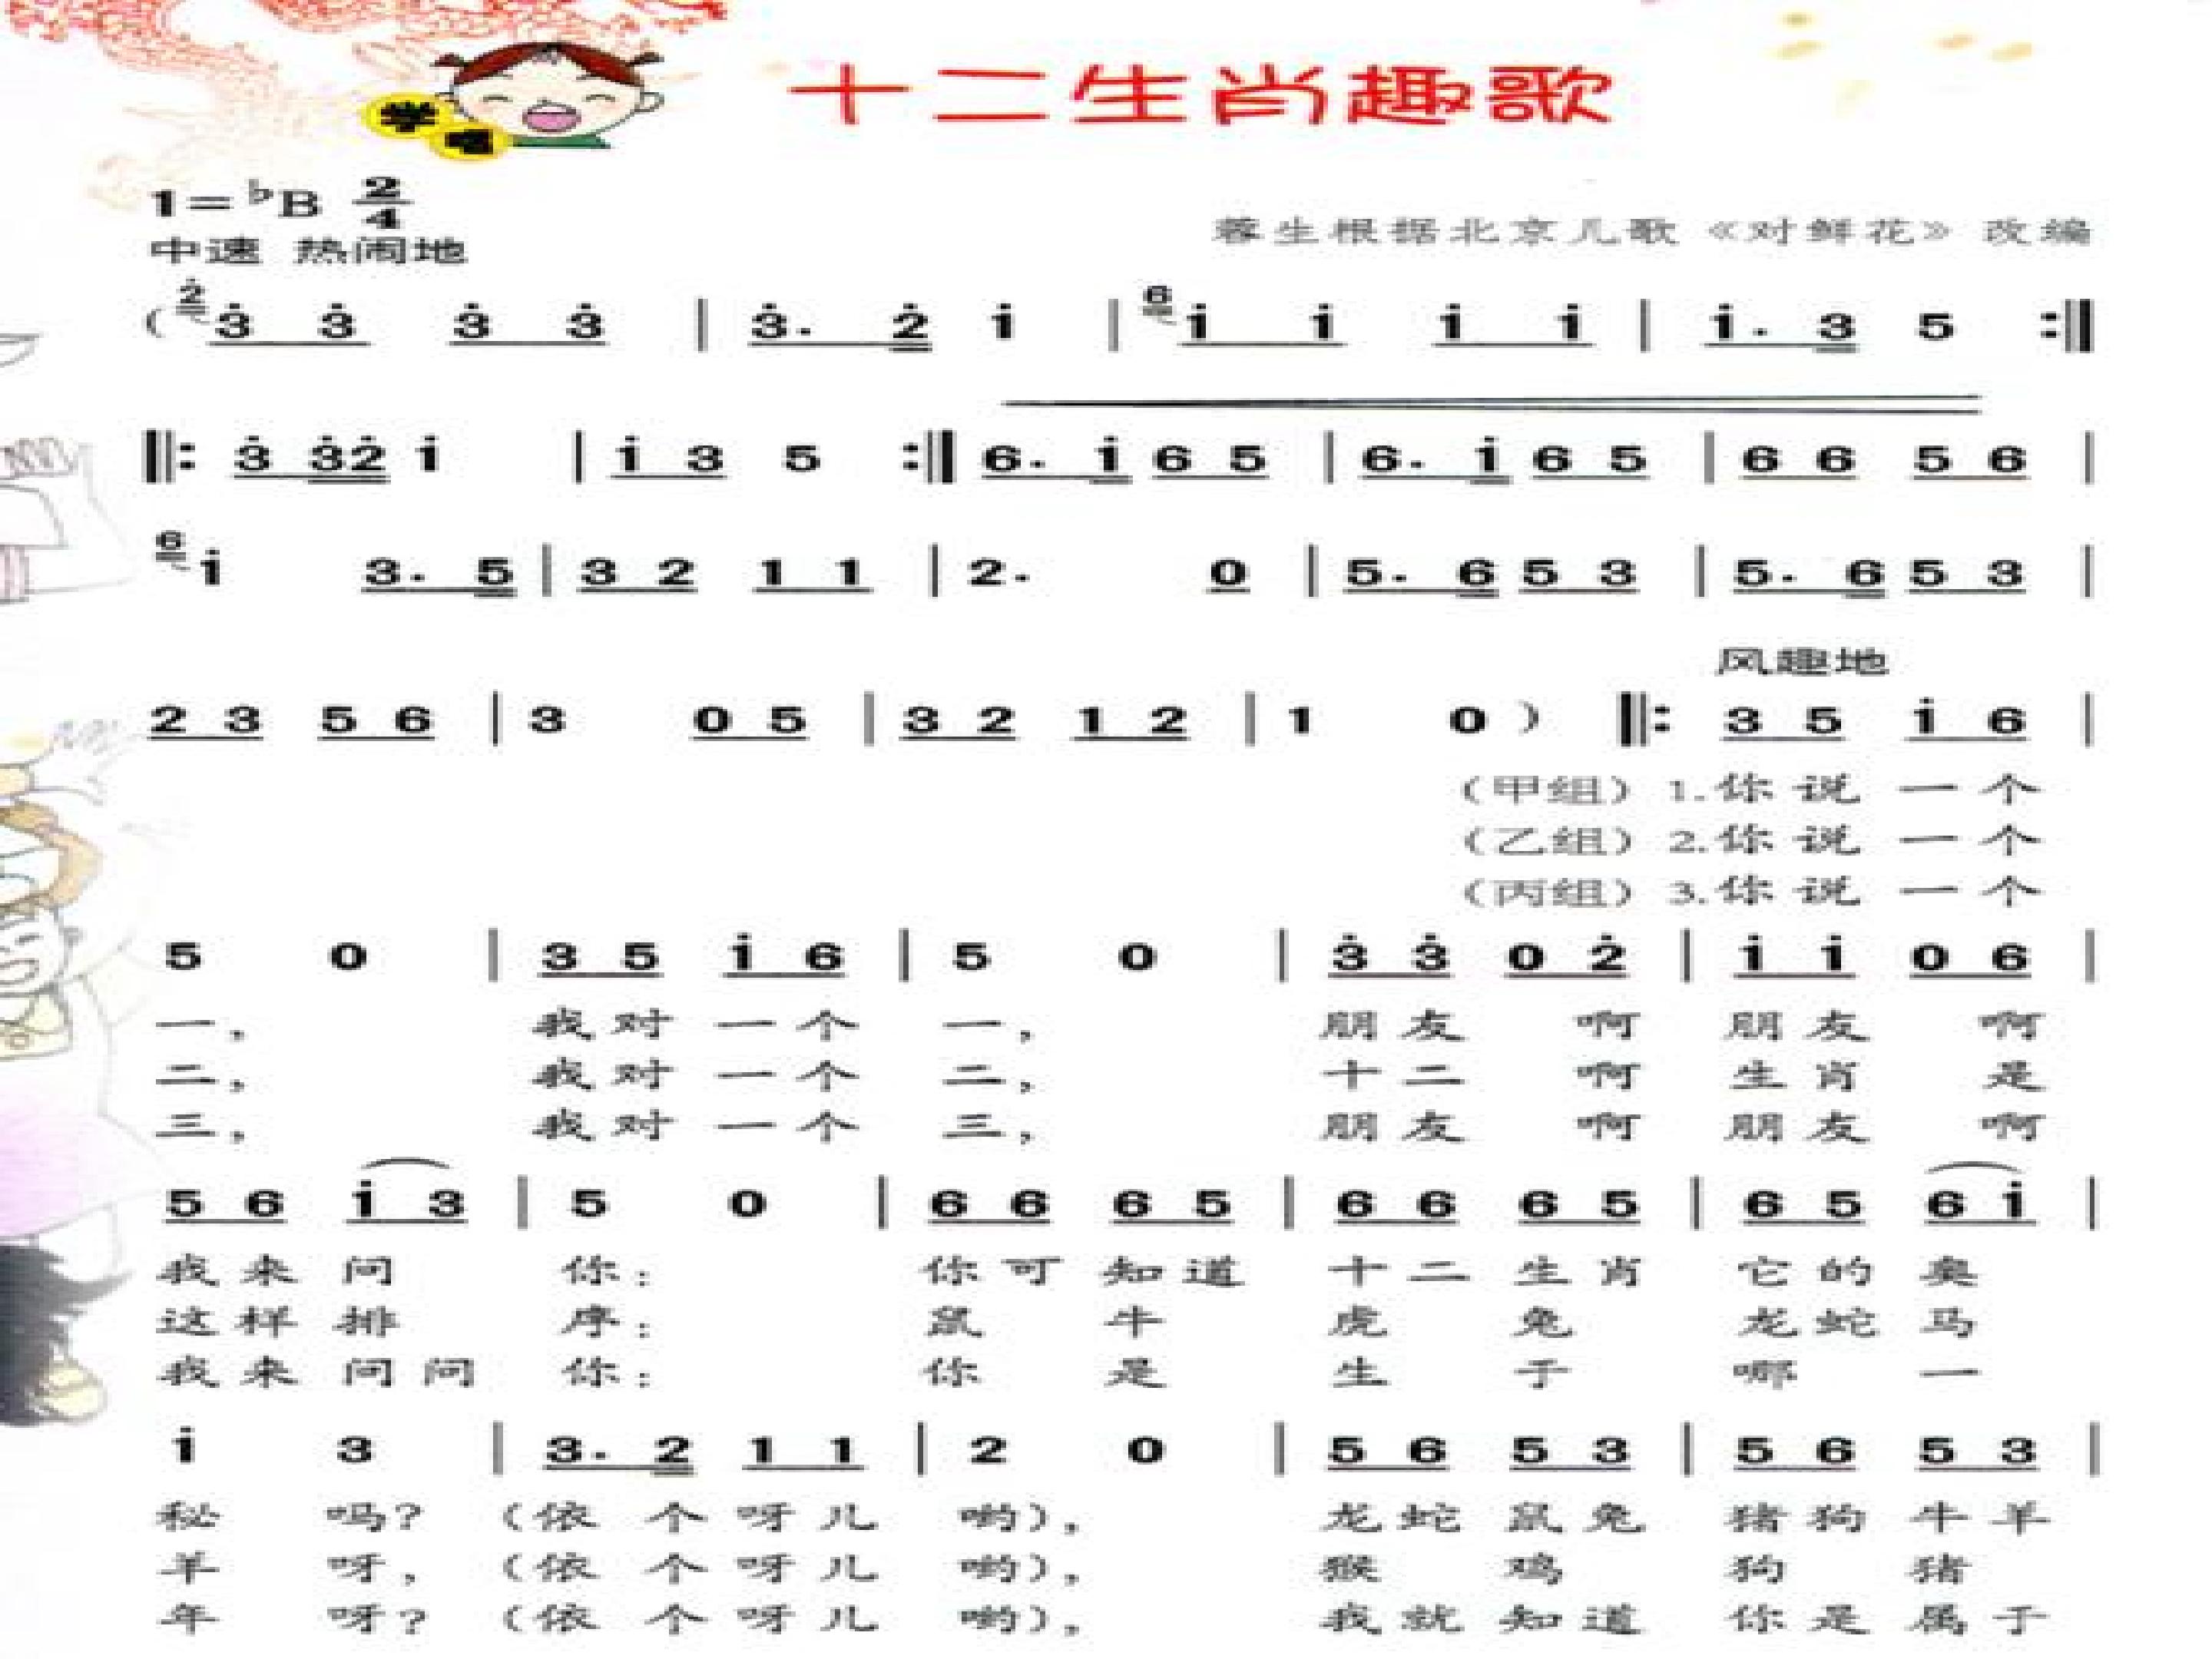 十二生肖趣歌
1=♭B 2/4
中速 热闹地
蓉生根据北京儿歌《对鲜花》改编
( 2̇ 3̇ 3̇ 3̇ 3̇ | 3̇. 2̇ 1̇ | 6 1̇ 1̇ 1̇ 1̇ | 1̇. 3 5 :‖
‖: 3̇ 3̇2̇ 1̇ | 1̇ 3 5 :‖ 6. 1̇ 6 5 | 6. 1̇ 6 5 | 6 6 5 6 |
6 1̇ 3. 5 | 3 2 1 1 | 2. 0 | 5. 6 5 3 | 5. 6 5 3 |
风趣地
2 3 5 6 | 3 0 5 | 3 2 1 2 | 1 0 ) ‖: 3 5 1̇ 6 |
(甲组) 1.你说一个
(乙组) 2.你说一个
(丙组) 3.你说一个
5 0 | 3 5 1̇ 6 | 5 0 | 3̇ 3̇ 0 2̇ | 1̇ 1̇ 0 6 |
一, 我对一个 一, 朋友 啊 朋友 啊
二, 我对一个 二, 十二 啊 生肖 是
三, 我对一个 三, 朋友 啊 朋友 啊
5 6 1̇ 3 | 5 0 | 6 6 6 5 | 6 6 6 5 | 6 5 6 1̇ |
我来 问 你: 你可 知道 十二 生肖 它的 奥
这样 排 序: 鼠 牛 虎 兔 龙蛇 马
我来 问问 你: 你 是 生 于 哪 一
1̇ 3 | 3. 2 1 1 | 2 0 | 5 6 5 3 | 5 6 5 3 |
秘 吗? (依 个 呀儿 哟), 龙蛇 鼠兔 猪狗 牛羊
羊 呀, (依 个 呀儿 哟), 猴 鸡 狗 猪
年 呀? (依 个 呀儿 哟), 我就 知道 你是 属于